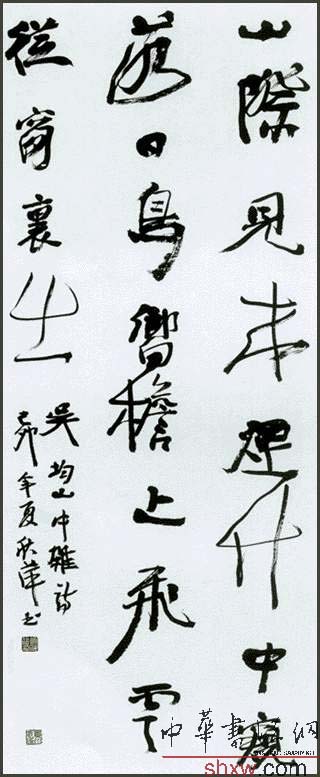 山際見来煙竹中窺
落日鳥嚮檐上飛雲
從窗裏出
吳均山中雜詩
己卯年夏秋萍书
中華書画網
shxw.com